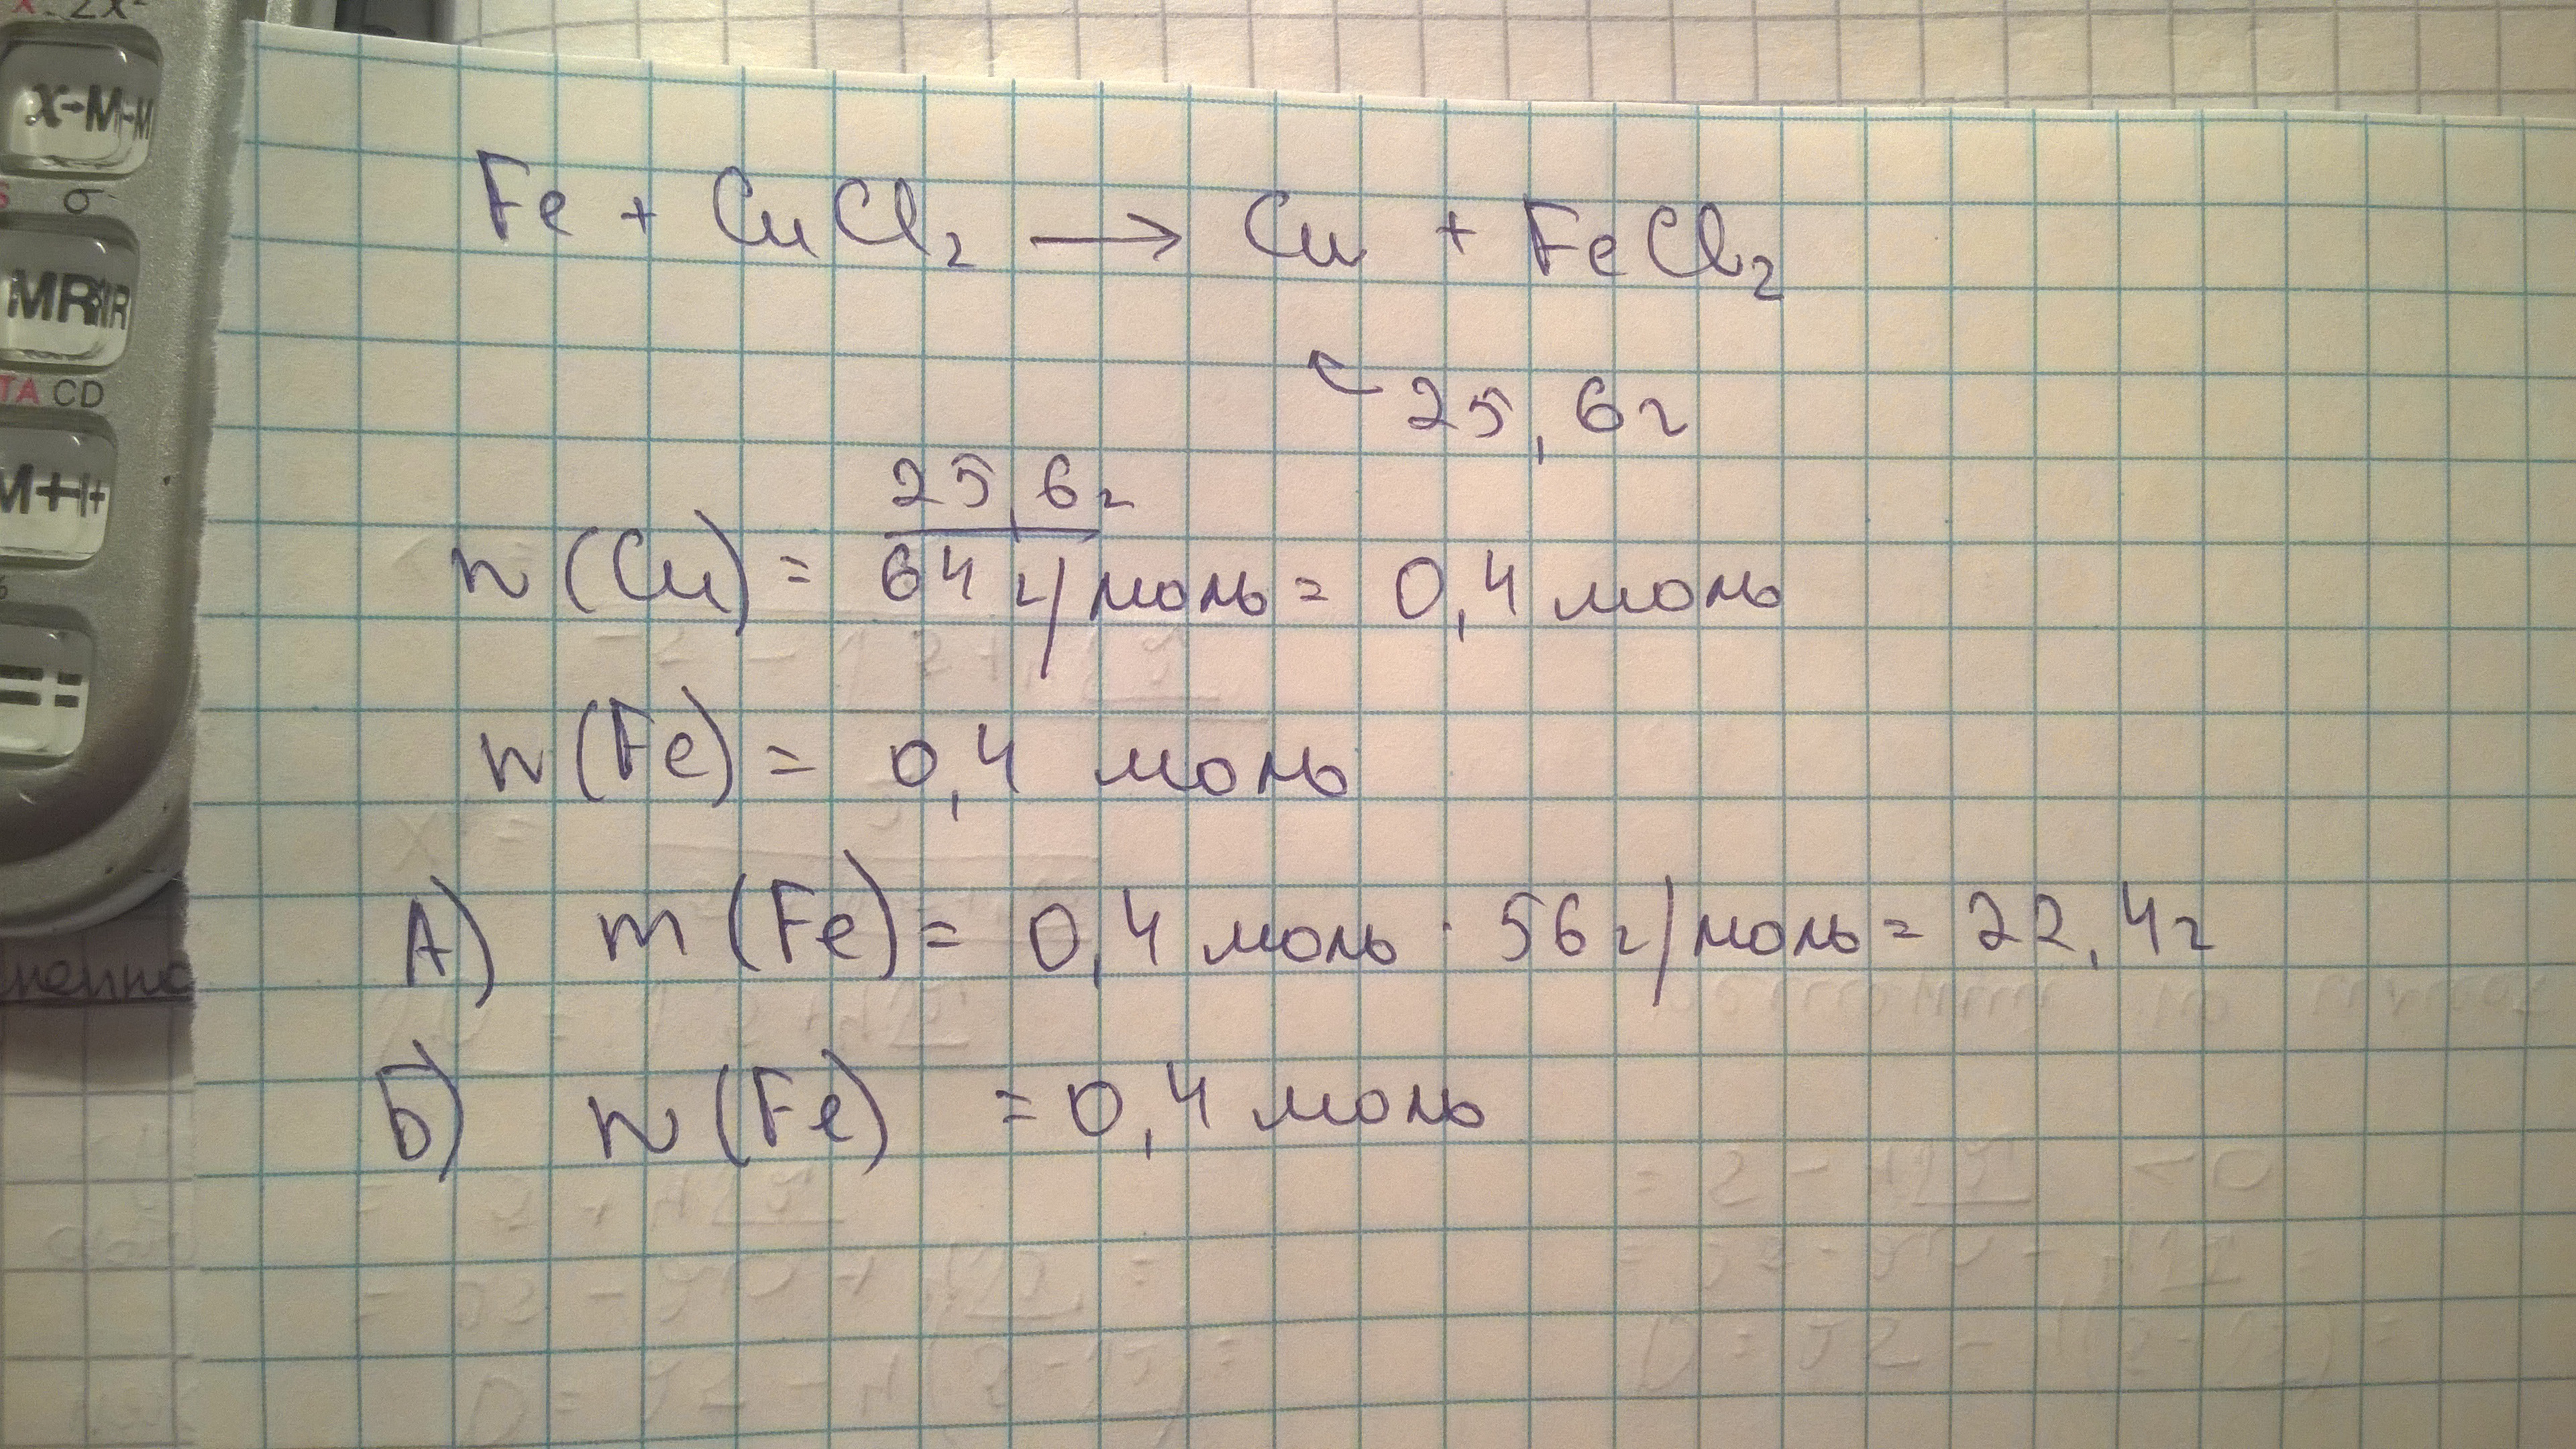 x→M
σ
MR
TA CD
M+
=
Fe + CuCl₂ → Cu + FeCl₂
25,6г
25,6г
n(Cu) = 64 г/моль = 0,4 моль
n(Fe) = 0,4 моль
А) m(Fe) = 0,4 моль · 56 г/моль = 22,4г
Б) n(Fe) = 0,4 моль